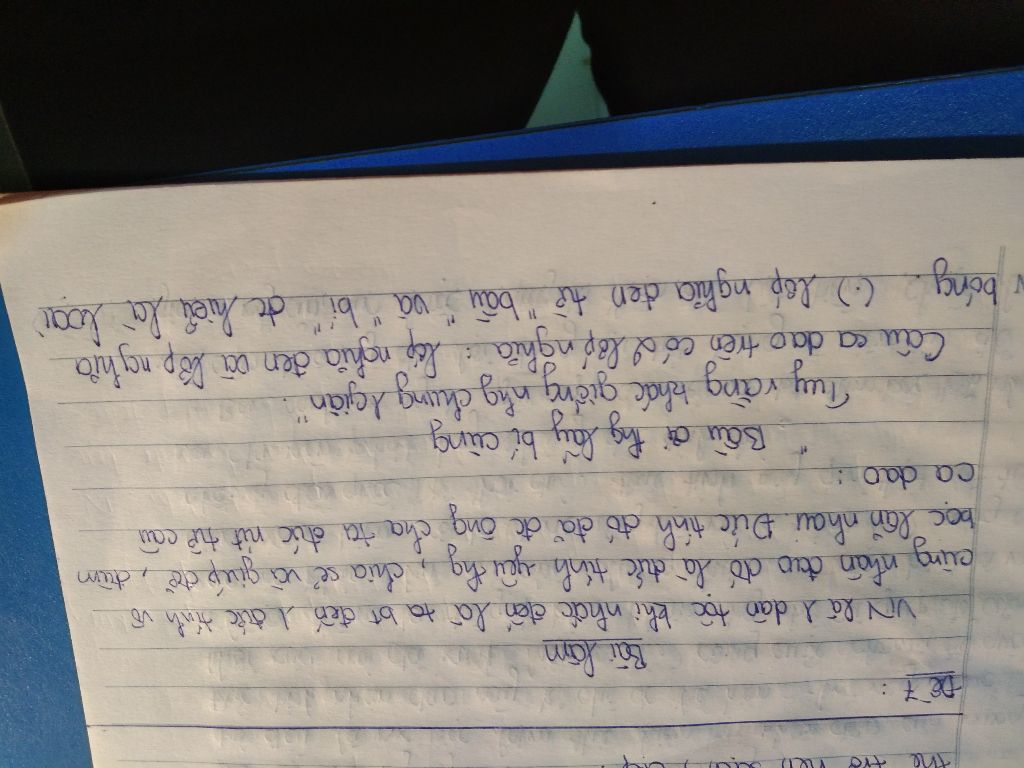 thể trở nên
Đề 7 :
Bài làm
VN là 1 dân tộc khi nhắc đến là ta bt đến 1 đức tính vô
cùng nhân đạo đó là đức tính yêu thg, chia sẻ và giúp đỡ, đùm
bọc lẫn nhau. Đức tính đó đã đc ông cha ta đúc rút từ câu
ca dao :
" Bầu ơi thg lấy bí cùng
Tuy rằng khác giống nhg chung 1 giàn".
Câu ca dao trên có 2 lớp nghĩa : lớp nghĩa đen và lớp nghĩa
bóng. (.) lớp nghĩa đen từ "bầu" và "bí" đc hiểu là loài